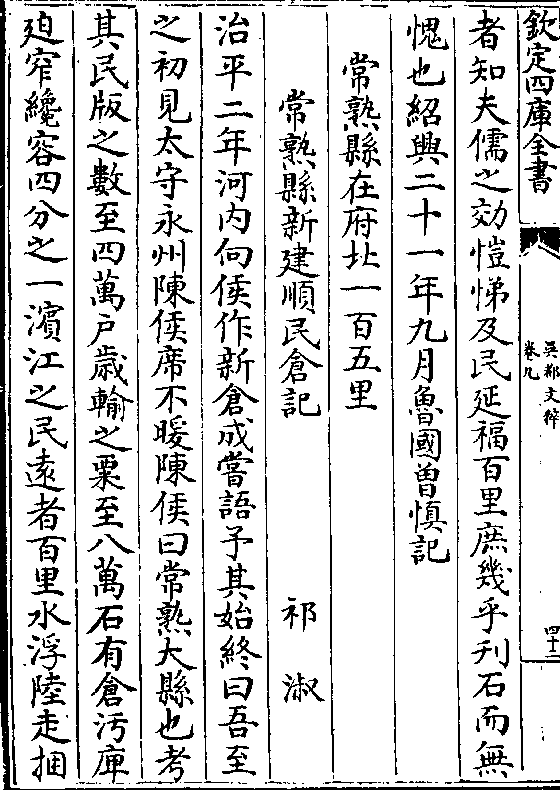 欽定四庫全書
吳都文粹
卷九
四十二
者知夫儒之效愷悌及民延福百里庶幾乎刋石而無
愧也紹興二十一年九月魯國曽慎記
常熟縣在府北一百五里
常熟縣新建順民倉記 祁淑
治平二年河内向侯作新倉成嘗語予其始終曰吾至
之初見太守永州陳侯席不暖陳侯曰常熟大縣也考
其民版之數至四萬户歲輸之粟至八萬石有倉汚庫
廹窄纔容四分之一濱江之民逺者百里水浮陸走捆